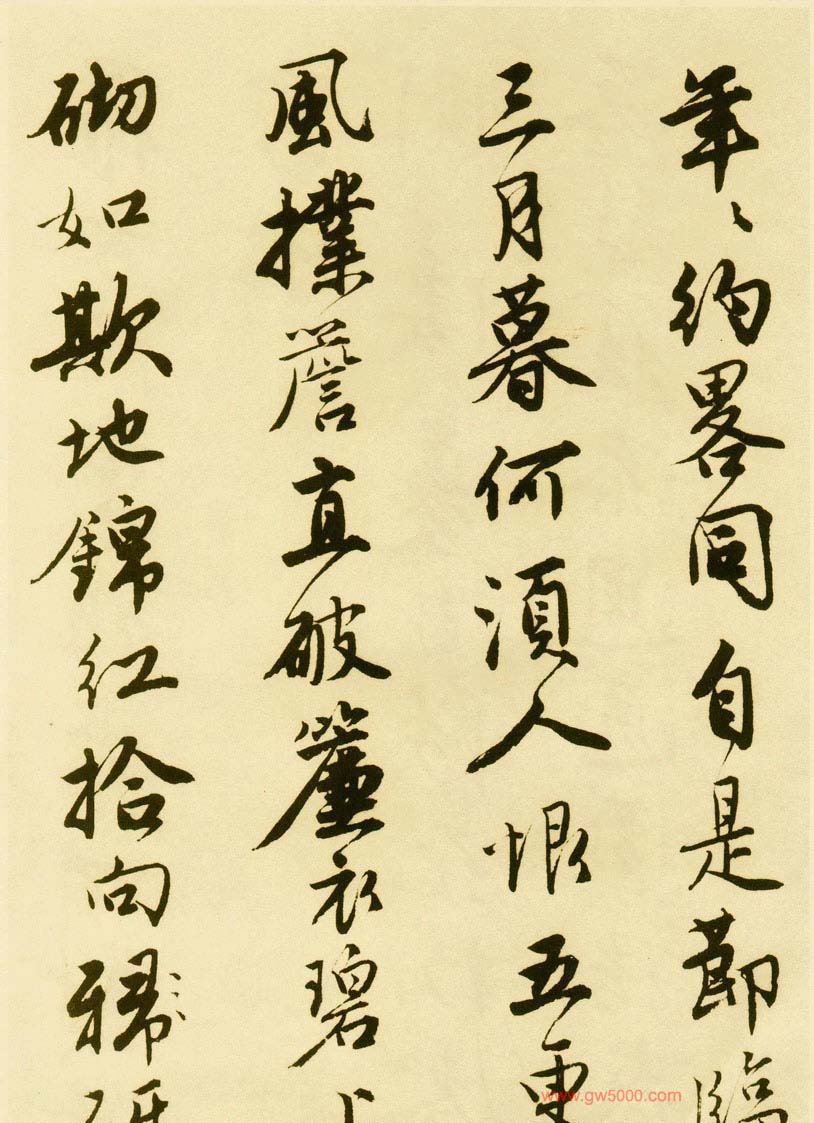 年々約畧同自是節臨
三月暮何須人恨五更
風撲簷直破簾衣碧上
砌如欺地錦紅拾向
www.gw5000.com